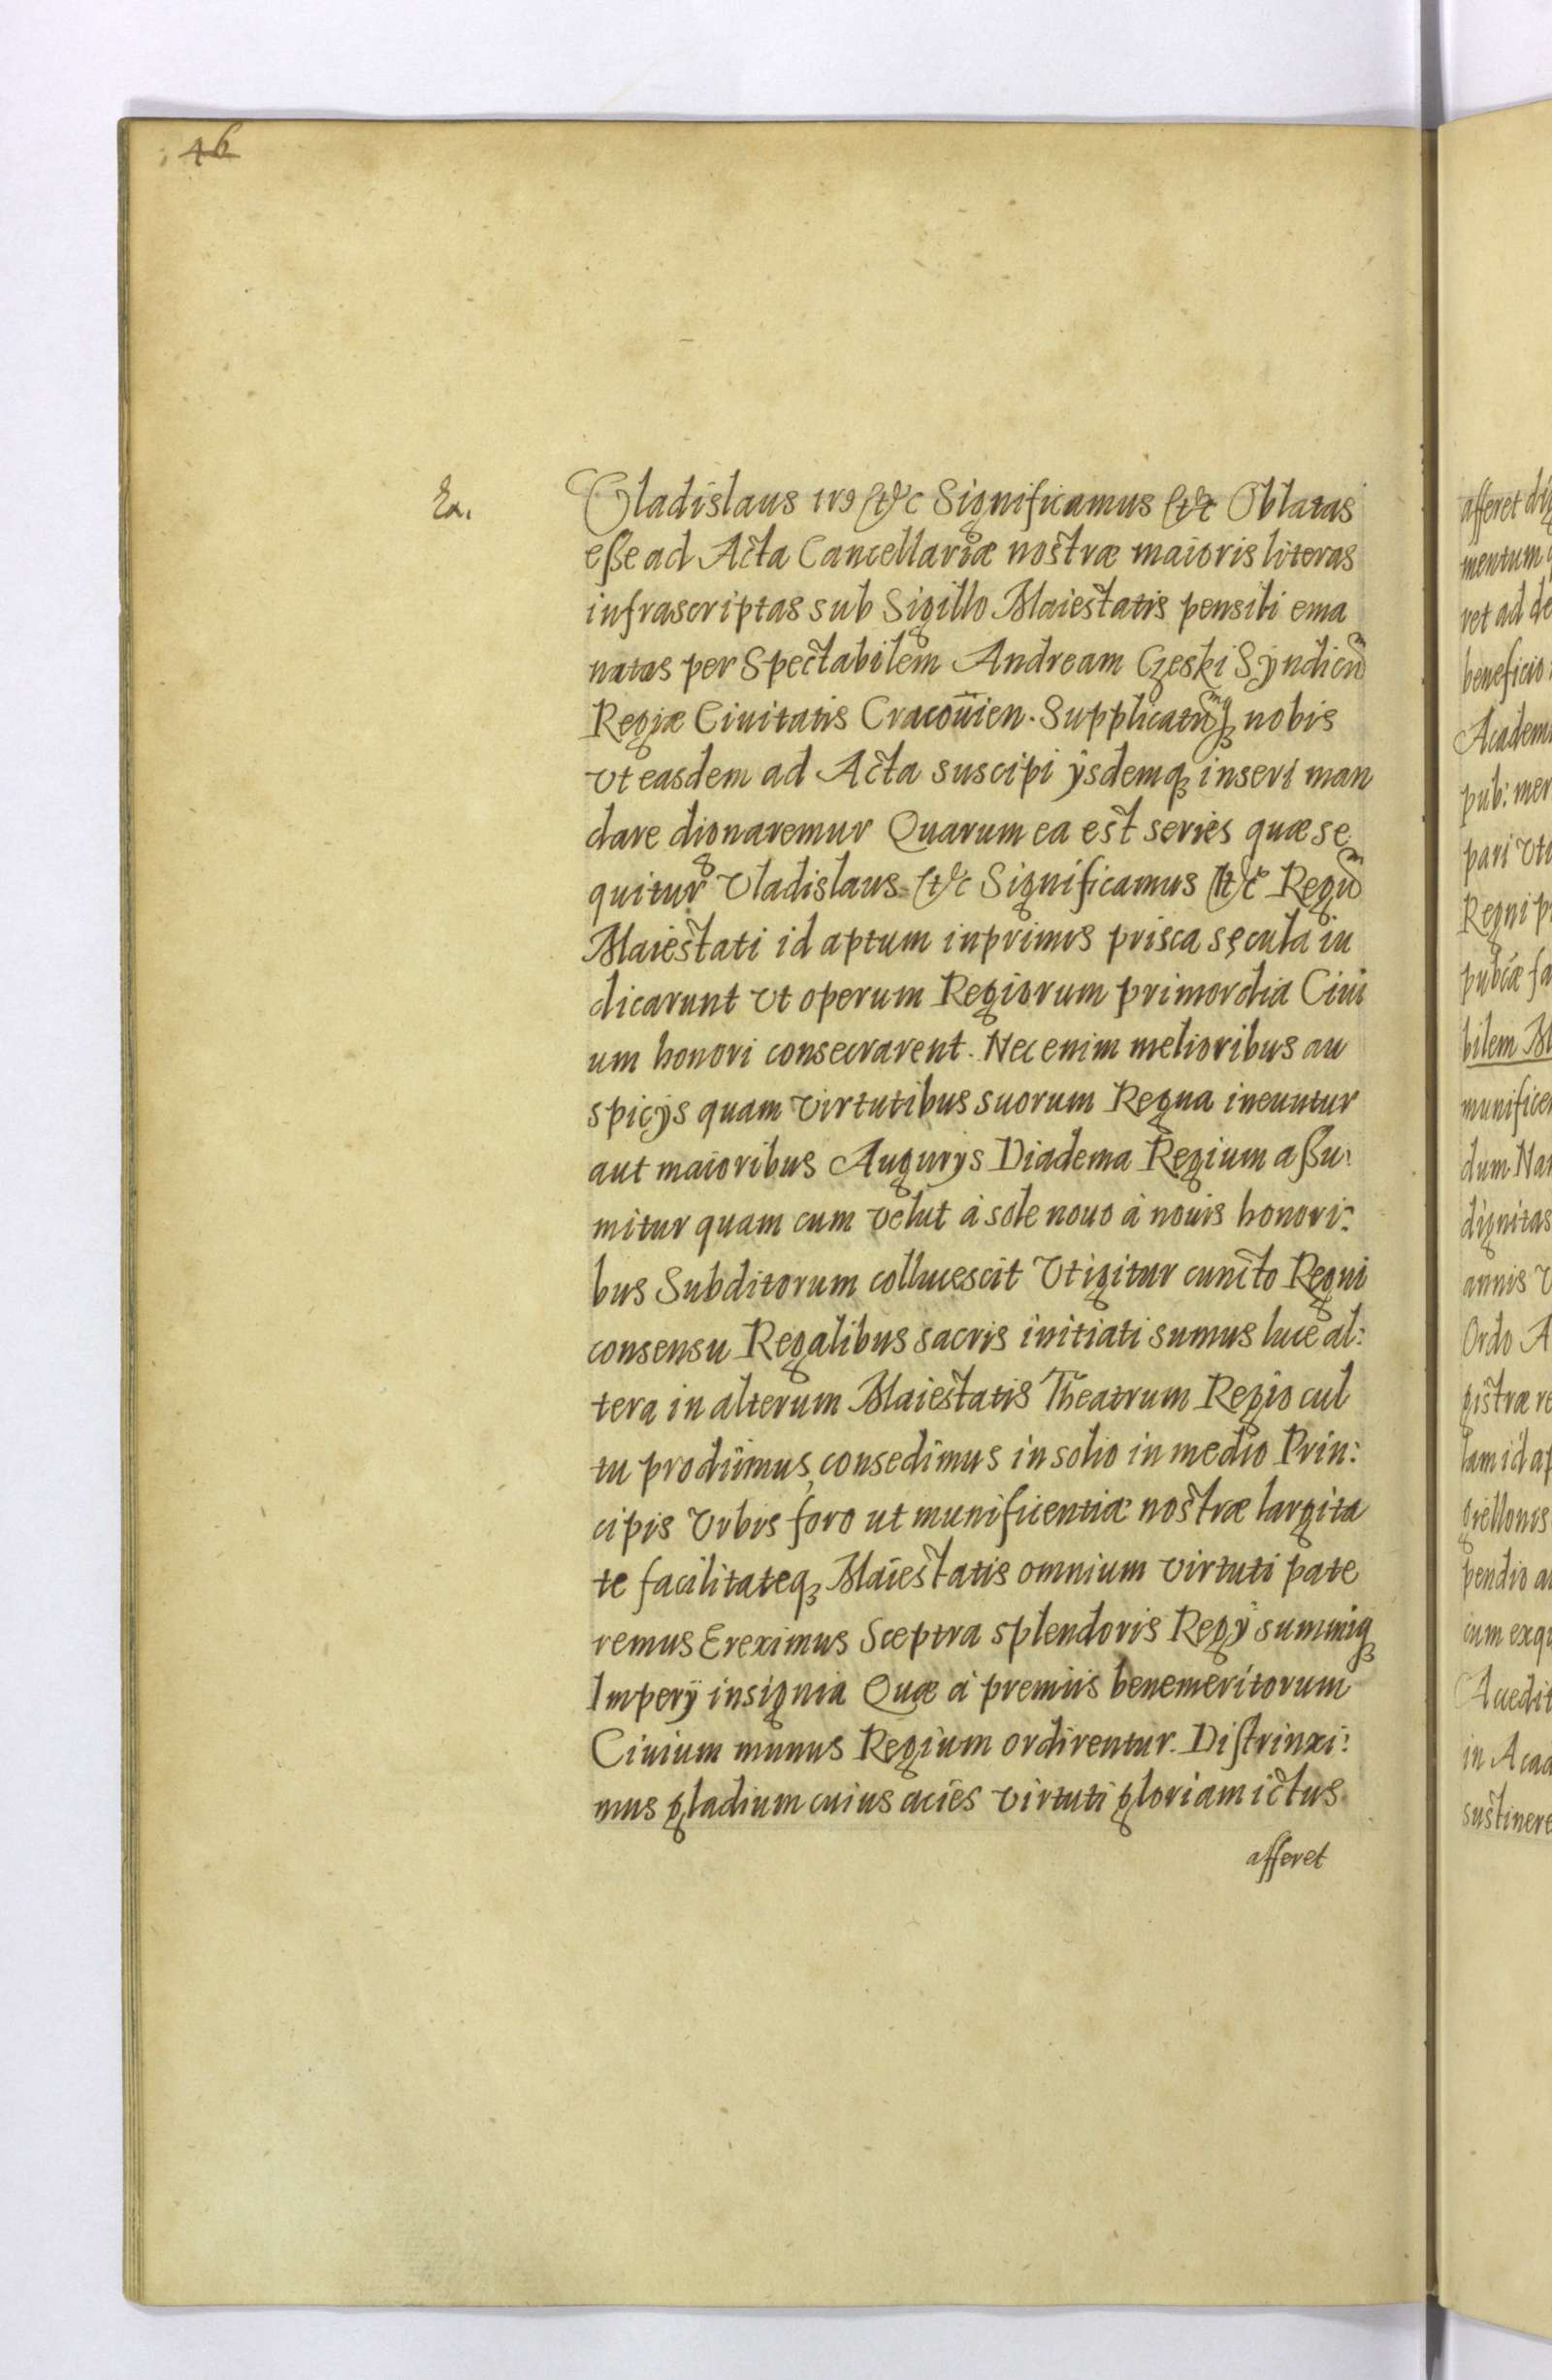 46
Ex.
Vladislaus IVs &c Significamus &c Oblatas
esse ad Acta Cancellariæ nostræ maioris literas
infrascriptas sub Sigillo Maiestatis pensili ema
natas per Spectabilem Andream Czeski Syndicũ
Regiæ Ciuitatis Cracouien. Supplicatũq₃ nobis
vt easdem ad Acta suscipi ÿsdemq₃ inseri man
dare dignaremur Quarum ea est series quæ se
quitur Vladislaus &c Significamus &c Regũ
Maiestati id aptum inprimis prisca sęcula iu
dicarunt vt operum Regiorum primordia Ciui
um honori consecrarent. Nec enim melioribus au
spicÿs quam virtutibus suorum Regna ineuntur
aut maioribus Augurÿs Diadema Regium assu:
mitur quam cum velut à sole nouo à nouis honori:
bus Subditorum collucescit Vt igitur cuncto Regni
consensu Regalibus sacris initiati sumus luce al:
tera in alterum Maiestatis Theatrum Regio cul
tu prodiimus, consedimus in solio in medio Prin:
cipis Vrbis foro ut munificentiæ nostræ largita
te facilitateq₃ Maiestatis omnium virtuti pate
remus Ereximus Sceptra splendoris Regÿ summiq₃
Imperÿ insignia Quæ à premiis benemeritorum
Ciuium munus Regium ordirentur. Distrinxi:
mus gladium cuius acies virtuti gloriam ictus
afferet
afferet
mentum
ret ad de
beneficio
Academ
pub: mer
pari
Regni
bilem
dum
dignitas
annis
Ordo A
lam id
giellonis
pendio
cum
in Acad
sustinere